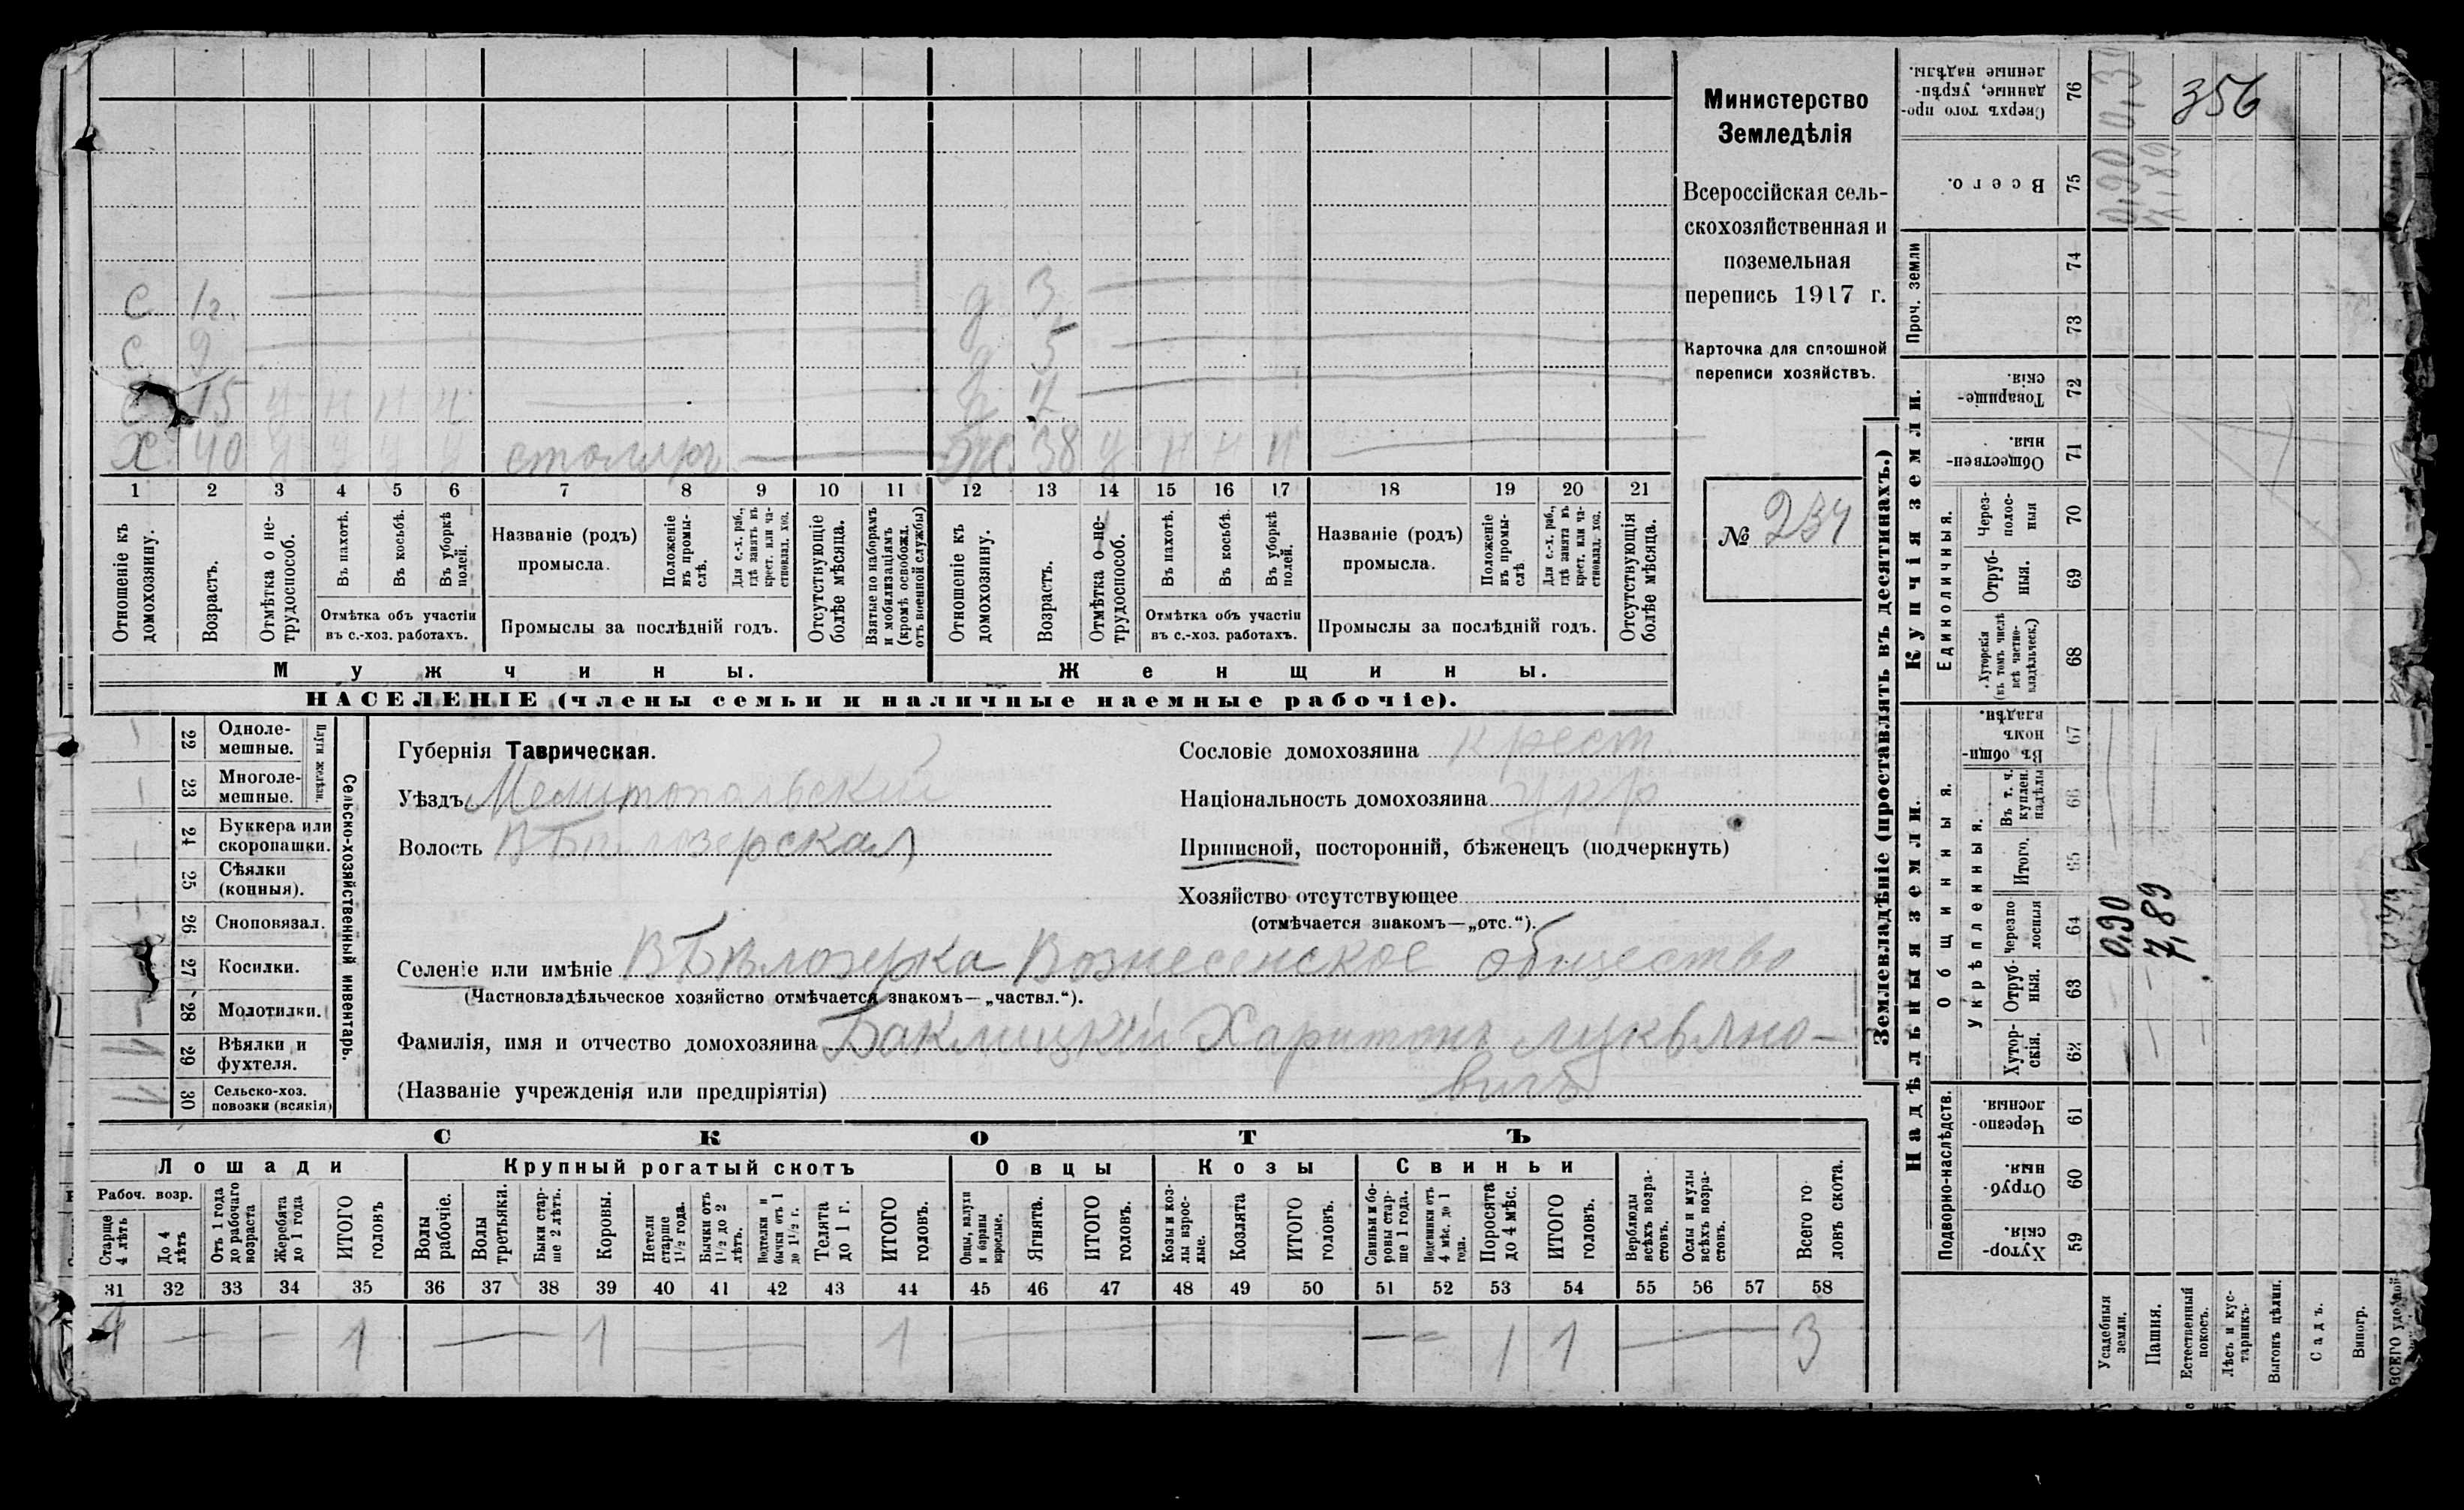 356
Министерство
Земледѣлія
Всероссійская сель-
скохозяйственная и
поземельная
перепись 1917 г.
Карточка для сплошной
переписи хозяйствъ.
№ 234
С 12 д 3
С 9 д 5
С 15
Х 40 столяръ Ж 38
1 2 3 4 5 6 7 8 9 10 11 12 13 14 15 16 17 18 19 20 21
Отношеніе къ домохозяину.
Возрастъ.
Отмѣтка о не-трудоспособ.
Въ пахотѣ.
Въ косьбѣ.
Въ уборкѣ полей.
Отмѣтка объ участіи
въ с.-хоз. работахъ.
Названіе (родъ)
промысла.
Положеніе въ промы-слѣ.
Для с.-х. раб., гдѣ занятъ въ крест. или ча-стновлад. хоз.
Промыслы за послѣдній годъ.
Отсутствующіе болѣе мѣсяца.
Взятые по наборамъ и мобилизаціямъ (кромѣ освобожд. отъ военной службы)
Отношеніе къ домохозяину.
Возрастъ.
Отмѣтка о не-трудоспособ.
Въ пахотѣ.
Въ косьбѣ.
Въ уборкѣ полей.
Отмѣтка объ участіи
въ с.-хоз. работахъ.
Названіе (родъ)
промысла.
Положеніе въ промы-слѣ
Для с.-х. раб., гдѣ занята въ крест. или ча-стновлад. хоз.
Промыслы за послѣдній годъ.
Отсутствующія болѣе мѣсяца.
Мужчины.
Женщины.
НАСЕЛЕНІЕ (члены семьи и наличные наемные рабочіе).
Сельско-хозяйственный инвентарь.
Плуги желѣзн.
22 Одноле-мешные.
23 Многоле-мешные.
24 Буккера или скоропашки.
25 Сѣялки (конныя).
26 Сноповязал.
27 Косилки.
28 Молотилки.
29 Вѣялки и фухтеля.
30 Сельско-хоз. повозки (всякія)
Губернія Таврическая.
Уѣздъ Мелитопольскій
Волость В Бѣлозерская
Сословіе домохозяина крест.
Національность домохозяина укр
Приписной, посторонній, бѣженецъ (подчеркнуть)
Хозяйство отсутствующее
(отмѣчается знакомъ—„отс.“).
Селеніе или имѣніе В Бѣлозерка Вознесенское общество
(Частновладѣльческое хозяйство отмѣчается знакомъ—„частвл.“).
Фамилія, имя и отчество домохозяина Баклицкій Харитонъ Лукьяно-
вичъ
(Названіе учрежденія или предпріятія)
СКОТЪ
Лошади
Крупный рогатый скотъ
Овцы
Козы
Свиньи
Рабоч. возр.
Старше 4 лѣтъ
До 4 лѣтъ
Отъ 1 года до рабочаго возраста
Жеребята до 1 года
ИТОГО головъ
Волы рабочіе.
Волы третьяки.
Быки стар-ше 2 лѣтъ.
Коровы.
Нетели старше 1½ года.
Бычки отъ 1½ до 2 лѣтъ.
Подтелки и бычки отъ 1 до 1½ г.
Телята до 1 г.
ИТОГО головъ.
Овцы, валухи и бараны взрослые.
Ягнята.
ИТОГО головъ.
Козы и коз-лы взрос-лые.
Козлята
ИТОГО головъ.
Свиньи и бо-ровы стар-ше 1 года.
Подсвинки отъ 4 мѣс. до 1 года.
Поросята до 4 мѣс.
ИТОГО головъ.
Верблюды всѣхъ возра-стовъ.
Ослы и мулы всѣхъ возра-стовъ.
Всего го-ловъ скота.
31 32 33 34 35 36 37 38 39 40 41 42 43 44 45 46 47 48 49 50 51 52 53 54 55 56 57 58
1 — — 1 — 1 — 1 — — 1 1 — 3
Землевладѣніе (проставлять въ десятинахъ.)
Надѣльныя земли.
Купчія земли.
Проч. земли
Подворно-наслѣдств.
Общинныя.
Укрѣпленныя.
Единоличныя.
59 Хутор-скія.
60 Отруб-ныя.
61 Черезпо-лосныя.
62 Хутор-скія.
63 Отруб-ныя.
64 Черезпо-лосныя
65 Итого.
66 Въ т. ч. куплен. надѣлы
67 Въ общи-номъ владѣн.
68 Хуторскія (въ томъ числѣ всѣ частно-владѣльческ.)
69 Отруб-ныя.
70 Через-полос-ныя
71 Обществен-ныя.
72 Товарище-скія.
73
74
75 Всего.
76 Сверхъ того про-данные, укрѣп-ленные надѣлы.
Усадебныя земли.
0,90
Пашня.
7,89
7,89
Естественный покосъ.
Лѣсъ и кус-тарникъ.
Выгонъ цѣлин.
Садъ.
Виногр.
ВСЕГО удобной